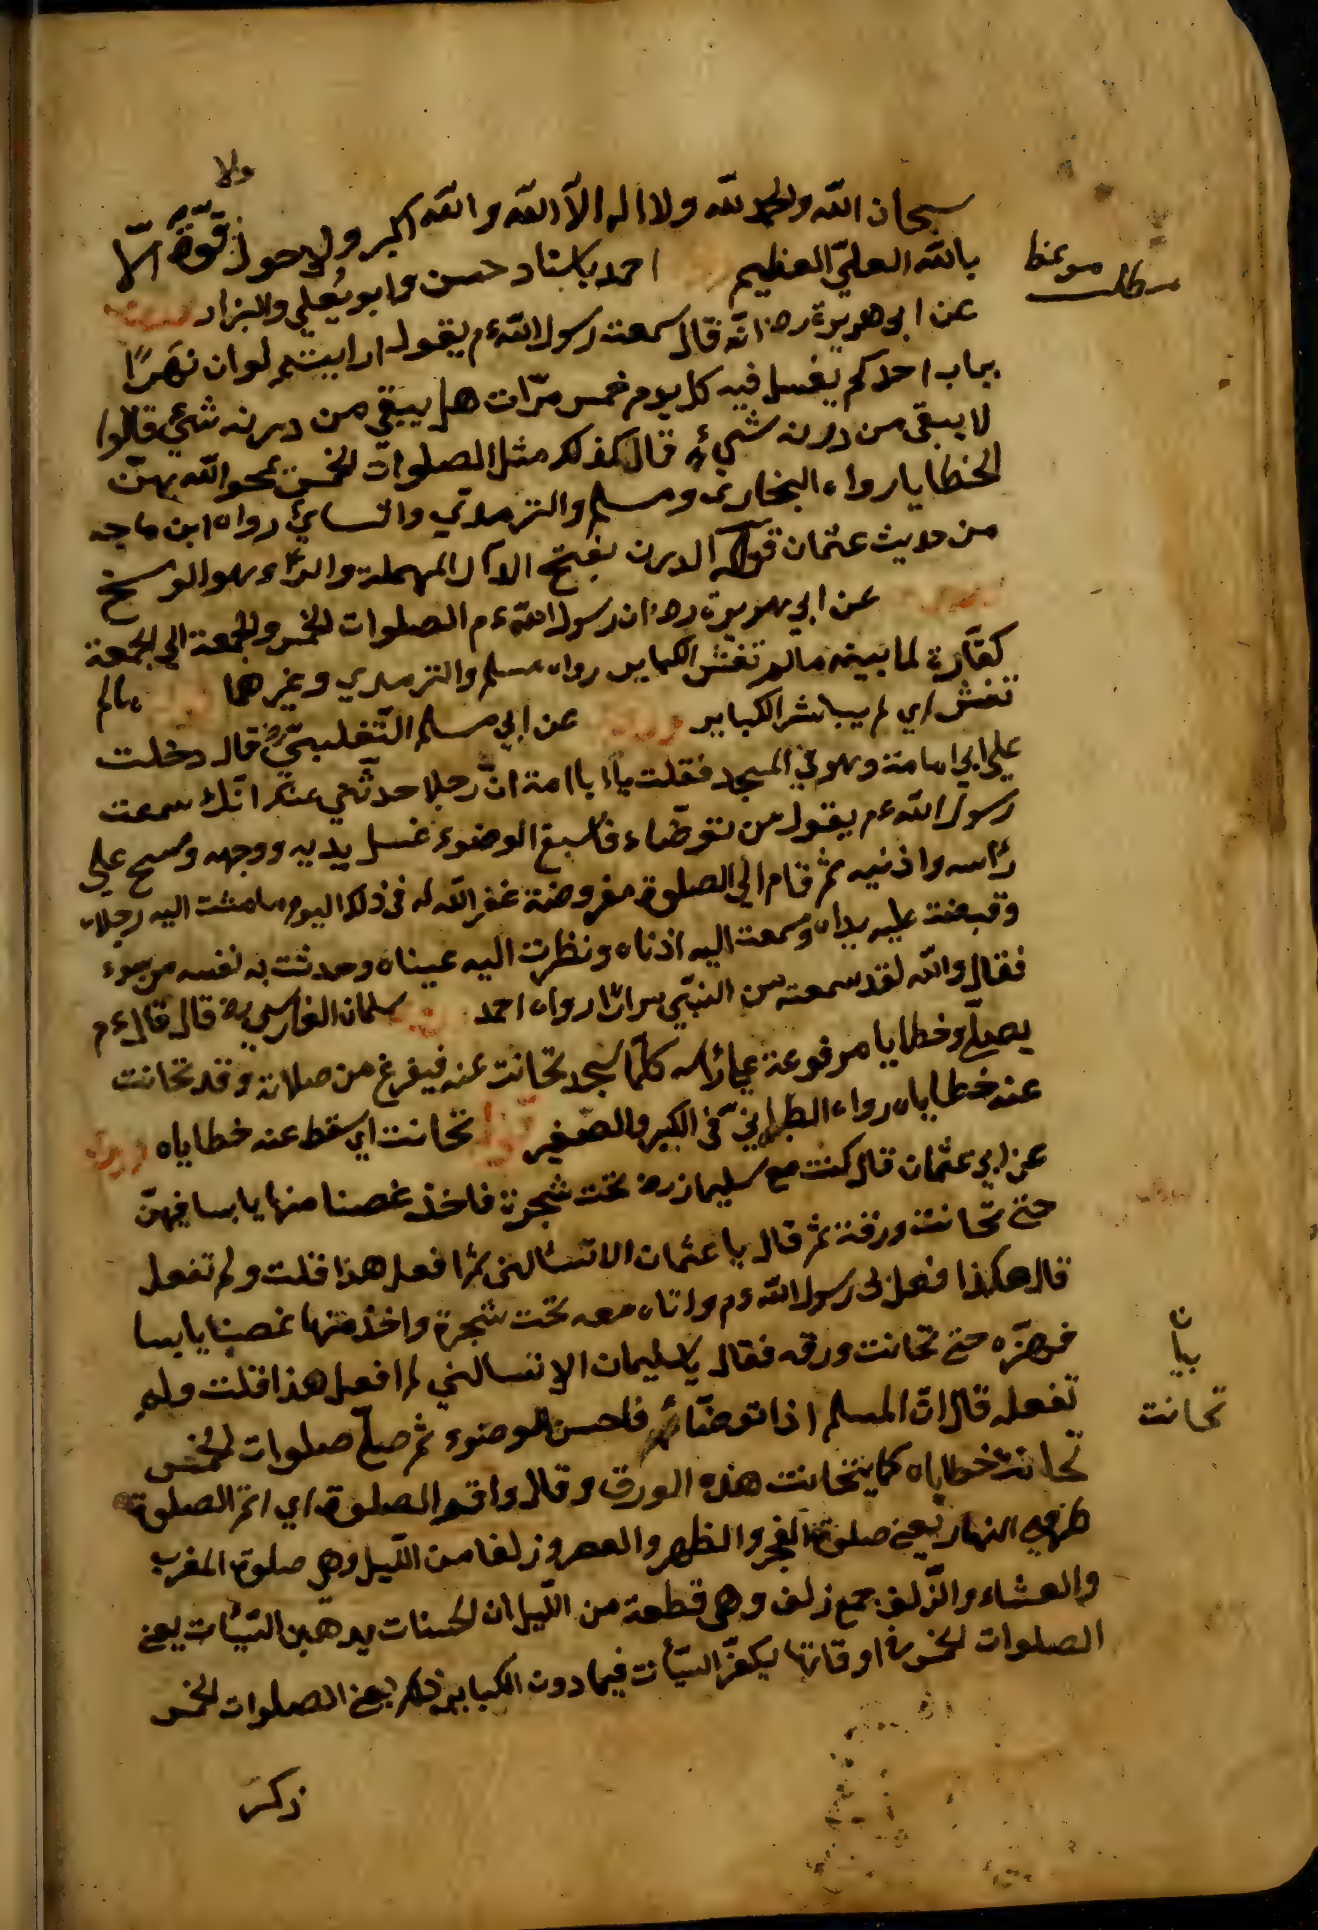 ولا
سبحان الله والحمد لله ولا اله الا الله والله اكبر ولا حول قوة الا
بالله العلي العظيم احمد باسناد حسن وابو يعلي والبزاد
مطلب موعظا
عن ابي هريرة رض انه قال سمعت رسول الله ءم يقول ارايتم لو ان نهرا
بباب احدكم يغسل فيه كل يوم خمس مرات هل يبقي من درنه شيء قالوا
لا يبقي من درنه شيء قال كذلك مثل الصلوات الخمس يمحو الله بهن
الخطايا رواه البخاري ومسلم والترمذي والنسائي رواه ابن ماجه
من حديث عثمان قوله الدرن بفتح الدال المهملة والراء هو الوسخ
عن ابي هريرة رض ان رسول الله ءم الصلوات الخمس والجمعة الي الجمعة
كفارة لما بينه مالم تغش الكباير رواه مسلم والترمذي وغيرهما مالم
تغش اي لم يباشر الكباير عن ابي مسلم التغلبي قال دخلت
علي ابي امامة وهو في المسجد فقلت يا ابا امة ان رجلا حدثني عنك انك سمعت
رسول الله ءم يقول من توضاء فاسبغ الوضوء غسل يديه ووجهه ومسح علي
رأسه واذنيه ثم قام الي الصلوة مفروضة غفر الله له في ذلك اليوم ما مشت اليه رجلاه
وقبضت عليه يداه وسمعت اليه اذناه ونظرت اليه عيناه وحدثت به نفسه من سوء
فقال والله لقد سمعته من النبي مرارا رواه احمد سلمان الفارسي رض قال قال ءم
يصلي وخطايا مرفوعة علي رأسه كلما سجد تحانت عنه فيفرغ من صلاته وقد تحانت
عنه خطاياه رواه الطبراني في الكبير والصغير تحانت اي سقط عنه خطاياه
عن ابي عثمان قال كنت مع سليمان رض تحت شجرة فاخذ غصنا منها يابسا فهز
حتي تحانت ورقة ثم قال يا عثمان الا تسألني لم افعل هذا قلت ولم تفعل
قال هكذا فعل لي رسول الله ءم وانا معه تحت شجرة واخذ منها غصنا يابسا
فهزه حتي تحانت ورقه فقال يا سليمان الا تسالني لم افعل هذا قلت ولم
بيان
تحانت
تفعله قال ان المسلم اذا توضأ فاحسن الوضوء ثم صلي صلوات الخمس
تحانت خطاياه كما يتحانت هذه الورق وقال واقم الصلوة اي اتم الصلوة
طرفي النهار يعني صلوة الفجر والظهر والعصر وزلفا من الليل وهي صلوة المغرب
والعشاء والزلف جمع زلف وهي قطعة من الليل ان الحسنات يدهبن السيأت يعني
الصلوات الخمس في اوقاتها يكفر السيأت فيما دون الكباير ذلك يعني الصلوات الخمس
ذكر